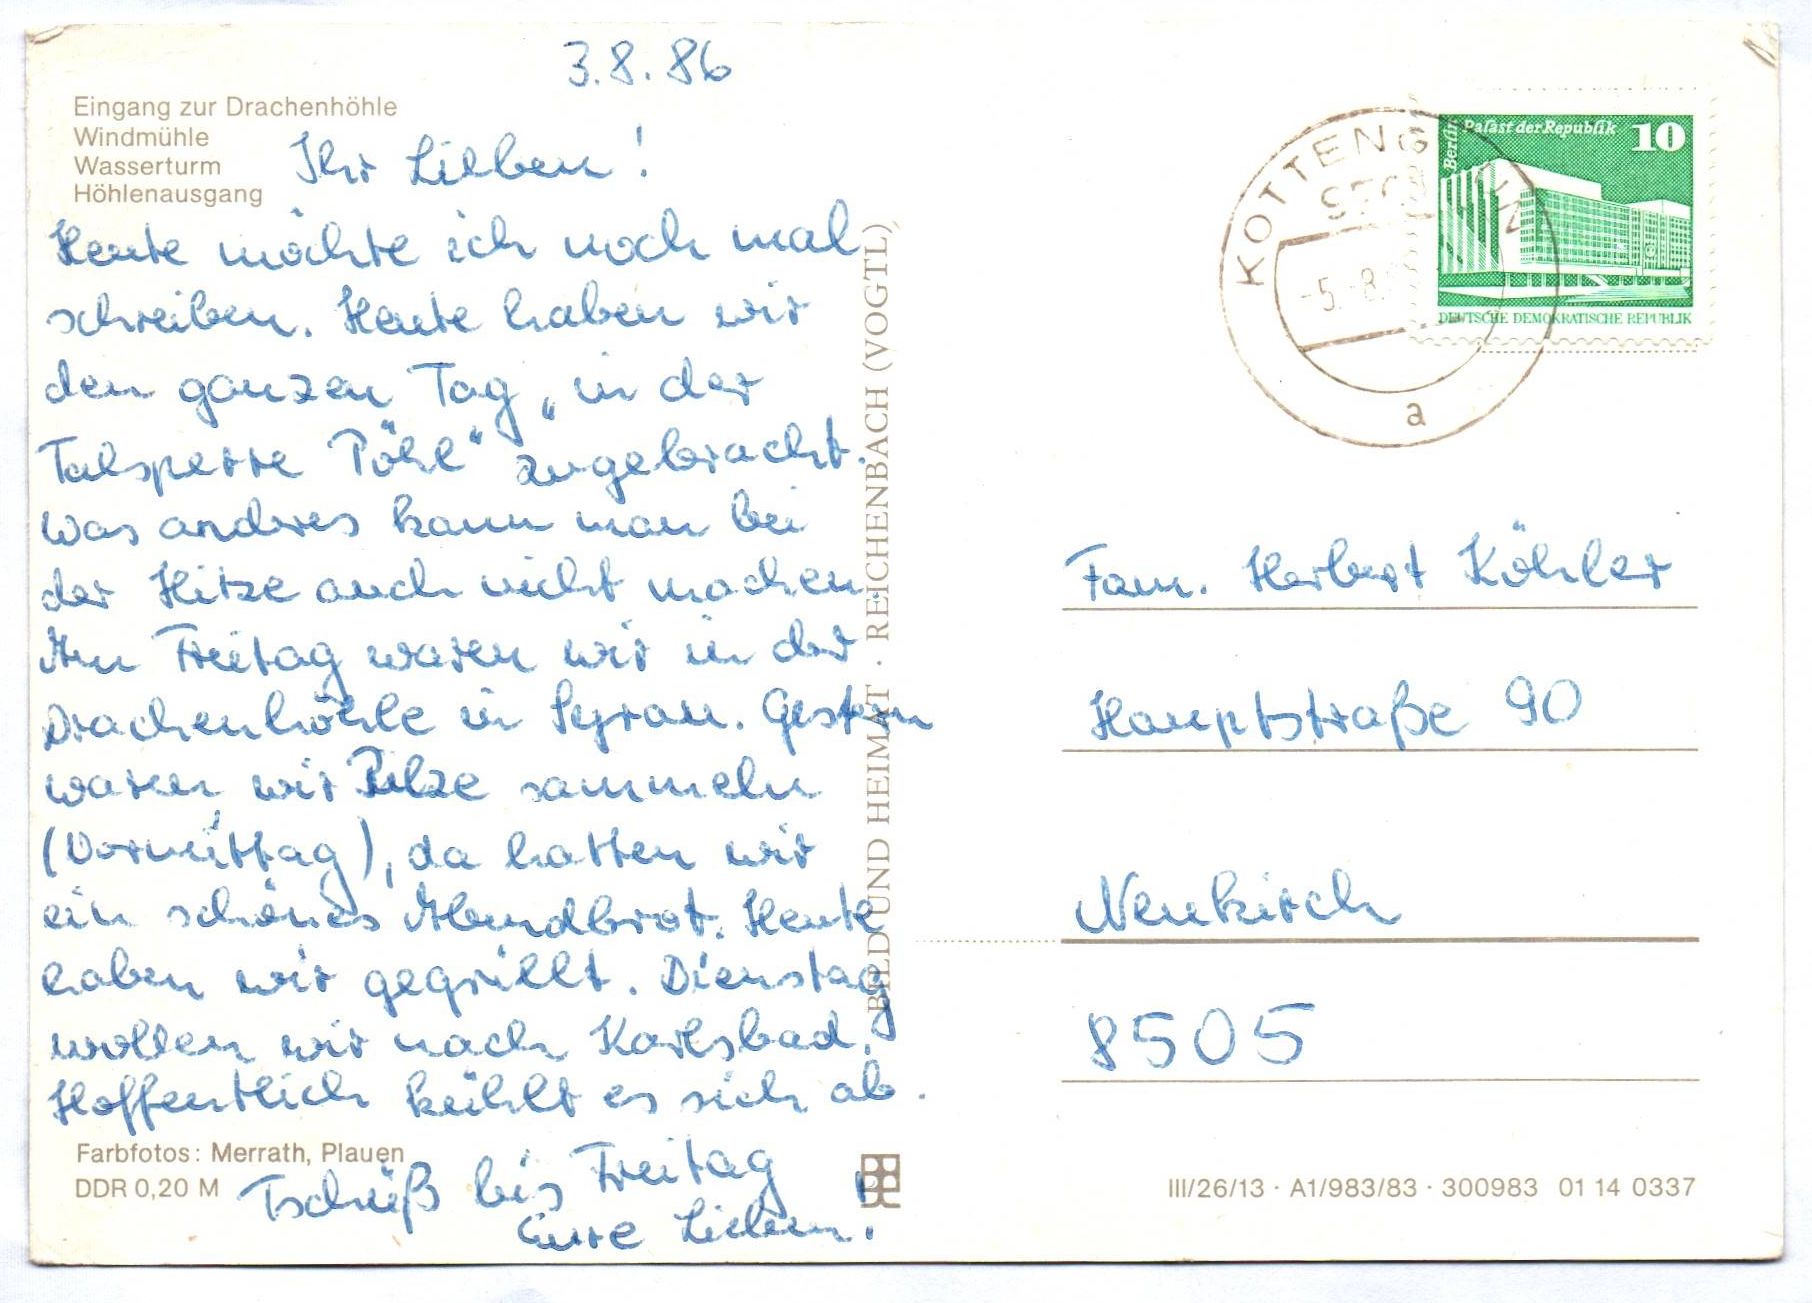 3.8.86
Eingang zur Drachenhöhle
Windmühle
Wasserturm
Höhlenausgang
Ihr Lieben!
Heute möchte ich noch mal
schreiben. Heute haben wir
den ganzen Tag „in der
Talsperre Pöhl“ zugebracht.
Was anderes kann man bei
der Hitze auch nicht machen.
Am Freitag waren wir in der
Drachenhöhle in Syrau. Gestern
waren wir Pilze sammeln
(Vormittag), da hatten wir
ein schönes Abendbrot. Heute
haben wir gegrillt. Dienstag
wollen wir nach Karlsbad.
Hoffentlich kühlt es sich ab.
Tschüß bis Freitag
Eure Lieben.
Farbfotos: Merrath, Plauen
DDR 0,20 M
BILD UND HEIMAT · REICHENBACH (VOGTL)
KOTTENGRÜN
-5.-8.
a
Berlin Palast der Republik
10
DEUTSCHE DEMOKRATISCHE REPUBLIK
Fam. Herbert Köhler
Hauptstraße 90
Neukirch
8505
III/26/13 · A1/983/83 · 300983 01 14 0337